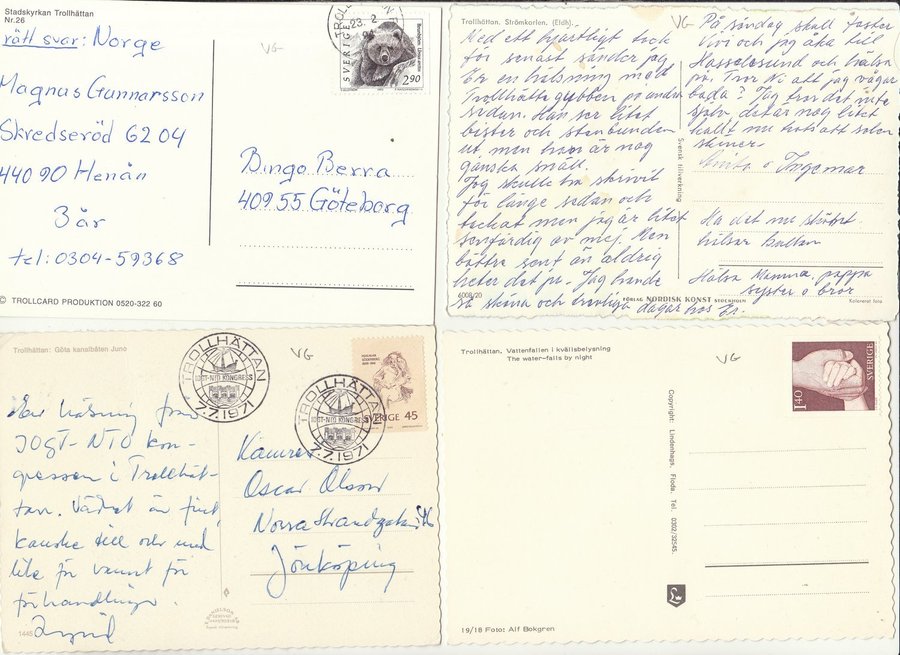 Stadskyrkan Trollhättan
Nr.26
rätt svar: Norge
Magnus Gunnarsson
Skredseröd 6204
440 90 Henån
3 år
tel: 0304-59368
© TROLLCARD PRODUKTION 0520-322 60
VG
TROLL
23. 2
SVERIGE
2.90
Bingo Berra
409 55 Göteborg
Trollhättan. Strömkarlen. (Eldh).
VG
Med ett hjärtligt tack
för senast sänder jag
Er en hälsning med
Trollhättegubben på andra
sidan. Han ser litet
bister och stenbunden
ut men han är nog
ganska snäll.
Jag skulle ha skrivit
för länge sidan och
tackat men jag är litet
senfärdig av mej. Men
bättre sent än aldrig
heter det ju. Jag hade
så sköna och trevliga dagar hos Er.
6008/20
Svensk tillverkning
FÖRLAG NORDISK KONST STOCKHOLM
På söndag skall faster
Vivi och jag åka till
Hasselösund och hälsa
på. Tror Ni att jag vågar
bada? Jag tror det inte
själv det är nog litet
kallt nu trots att solen
skiner.
Ingemar
Ha det nu skönt
hälsar
Hälsa Mamma, pappa
syster o bror
Kolorerat foto
Trollhättan: Göta kanalbåten Juno
VG
TROLLHÄTTAN
IOGT-NTO KONGRESS
7.7.1971
TROLLHÄTTAN
IOGT-NTO KONGRESS
7.7.1971
SVERIGE 45
hälsning från
IOGT-NTO kon-
gressen i Trollhät-
tan. Vädret är fint
kanske till och med
lite för varmt för
förhandlingar.
1445
Oscar Olson
Norra Strandgatan
Jönköping
Trollhättan. Vattenfallen i kvällsbelysning
The water-falls by night
VG
1.40
SVERIGE
Copyright: Lindenhags, Floda. Tel. 0302/32545.
L
19/18 Foto: Alf Bokgren